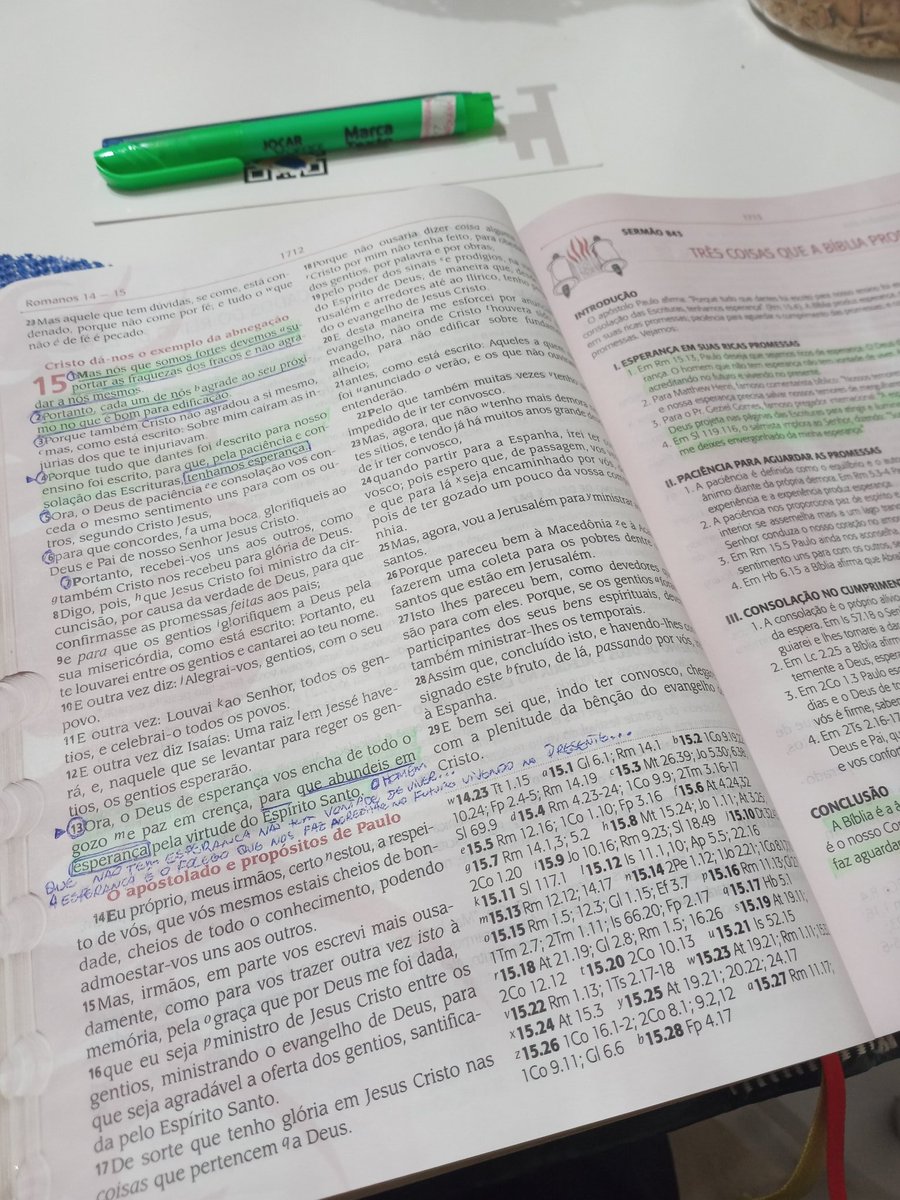 JOCAR
Marca
Texto
Romanos 14 – 15
1712
23Mas aquele que tem dúvidas, se come, está con-
denado, porque não come por fé; e tudo o que
não é de fé é pecado.
Cristo dá-nos o exemplo da abnegação
15 1Mas nós que somos fortes devemos su-
portar as fraquezas dos fracos e não agra-
dar a nós mesmos.
2Portanto, cada um de nós agrade ao seu próxi
mo no que é bom para edificação.
3Porque também Cristo não agradou a si mesmo,
mas, como está escrito: Sobre mim caíram as in-
júrias dos que te injuriavam.
4Porque tudo que dantes foi escrito para nosso
ensino foi escrito, para que, pela paciência e con-
solação das Escrituras, tenhamos esperança.
5Ora, o Deus de paciência e consolação vos con-
ceda o mesmo sentimento uns para com os ou-
tros, segundo Cristo Jesus,
6para que concordes, a uma boca, glorifiqueis ao
Deus e Pai de nosso Senhor Jesus Cristo.
7Portanto, recebei-vos uns aos outros, como
também Cristo nos recebeu para glória de Deus.
8Digo, pois, que Jesus Cristo foi ministro da cir-
cuncisão, por causa da verdade de Deus, para que
confirmasse as promessas feitas aos pais;
9e para que os gentios glorifiquem a Deus pela
sua misericórdia, como está escrito: Portanto, eu
te louvarei entre os gentios e cantarei ao teu nome.
10E outra vez diz: Alegrai-vos, gentios, com o seu
povo.
11E outra vez: Louvai ao Senhor, todos os gen-
tios, e celebrai-o todos os povos.
12E outra vez diz Isaías: Uma raiz em Jessé have-
rá, e, naquele que se levantar para reger os gen-
tios, os gentios esperarão.
13Ora, o Deus de esperança vos encha de todo o
gozo e paz em crença, para que abundeis em
esperança pela virtude do Espírito Santo. O HOMEM
QUE NÃO TEM ESPERANÇA NÃO TEM VONTADE DE VIVER...
A ESPERANÇA É O FÔLEGO QUE NOS FAZ ACREDITAR NO FUTURO VIVENDO NO PRESENTE...
O apostolado e propósitos de Paulo
14Eu próprio, meus irmãos, certo estou, a respei-
to de vós, que vós mesmos estais cheios de bon-
dade, cheios de todo o conhecimento, podendo
admoestar-vos uns aos outros.
15Mas, irmãos, em parte vos escrevi mais ousa-
damente, como para vos trazer outra vez isto à
memória, pela graça que por Deus me foi dada,
16que eu seja ministro de Jesus Cristo entre os
gentios, ministrando o evangelho de Deus, para
que seja agradável a oferta dos gentios, santifica-
da pelo Espírito Santo.
17De sorte que tenho glória em Jesus Cristo nas
coisas que pertencem a Deus.
18Porque não ousaria dizer coisa algu
Cristo por mim não tenha feito, para
dos gentios, por palavra e por obras;
19pelo poder dos sinais e prodígios, na
do Espírito de Deus; de maneira que, des
rusalém e arredores até ao Ilírico, tenho
do o evangelho de Jesus Cristo.
20E desta maneira me esforcei por anun
evangelho, não onde Cristo houvera
meado, para não edificar sobre funda
alheio;
21antes, como está escrito: Aqueles a que
foi anunciado o verão, e os que não ouv
entenderão.
22Pelo que também muitas vezes tenho
impedido de ir ter convosco.
23Mas, agora, que não tenho mais demora
tes sítios, e tendo já há muitos anos grande
de ir ter convosco,
24quando partir para a Espanha, irei ter
vosco; pois espero que, de passagem, vos
e que para lá seja encaminhado por vós,
pois de ter gozado um pouco da vossa co
nhia.
25Mas, agora, vou a Jerusalém para ministrar
santos.
26Porque pareceu bem à Macedônia e à A
fazerem uma coleta para os pobres dentre
santos que estão em Jerusalém.
27Isto lhes pareceu bem, como devedores
são para com eles. Porque, se os gentios
participantes dos seus bens espirituais, de
também ministrar-lhes os temporais.
28Assim que, concluído isto, e havendo-lhes
signado este fruto, de lá, passando por vós,
à Espanha.
29E bem sei que, indo ter convosco, chega
com a plenitude da bênção do evangelho
Cristo.
w14.23 Tt 1.15 a15.1 Gl 6.1; Rm 14.1 b15.2 1Co 9.19,22
10.24; Fp 2.4-5; Rm 14.19 c15.3 Mt 26.39; Jo 5.30; 6.38
Sl 69.9 d15.4 Rm 4.23-24; 1Co 9.9; 2Tm 3.16-17
e15.5 Rm 12.16; 1Co 1.10; Fp 3.16 f15.6 At 4.24,32
g15.7 Rm 14.1,3; 5.2 h15.8 Mt 15.24; Jo 1.11; At 3.25
2Co 1.20 i15.9 Jo 10.16; Rm 9.23; Sl 18.49 j15.10
k15.11 Sl 117.1 l15.12 Is 11.1,10; Ap 5.5; 22.16
m15.13 Rm 12.12; 14.17 n15.14 2Pe 1.12; 1Jo 2.21; 1Co 8.1
o15.15 Rm 1.5; 12.3; Gl 1.15; Ef 3.7 p15.16 Rm 11.13
1Tm 2.7; 2Tm 1.11; Is 66.20; Fp 2.17 q15.17 Hb 5.1
r15.18 At 21.19; Gl 2.8; Rm 1.5; 16.26 s15.19 At 19.11;
2Co 12.12 t15.20 2Co 10.13 u15.21 Is 52.15
v15.22 Rm 1.13; 1Ts 2.17-18 w15.23 At 19.21; Rm 1.11; 15.32
x15.24 At 15.3 y15.25 At 19.21; 20.22; 24.17
z15.26 1Co 16.1-2; 2Co 8.1; 9.2,12 a15.27 Rm 11.17;
1Co 9.11; Gl 6.6 b15.28 Fp 4.17
1713
SERMÃO 843
TRÊS COISAS QUE A BÍBLIA PRO
INTRODUÇÃO
O apóstolo Paulo afirma: "Porque tudo que dantes foi escrito para nosso ensino foi
consolação das Escrituras, tenhamos esperança" (Rm 15.4). A Bíblia produz esperança
em suas ricas promessas, paciência para aguardar o cumprimento das promessas
promessas. Vejamos:
I. ESPERANÇA EM SUAS RICAS PROMESSAS
1. Em Rm 15.13, Paulo deseja que sejamos ricos de esperança: O Deus
rança. O homem que não tem esperança
acreditando no futuro vivendo no presente.
2. Para Matthew Henri, famoso comentarista bíblico: "Nossos
e nossa esperança precisa salvar nossos
3. Para o Pr. Geziel Gomes, famoso pregador internacional: "A
Deus projeta nas páginas das Escrituras para atingir e ilumin
4. Em Sl 119.116, o salmista implora ao Senhor:
me deixes envergonhado da minha esperança".
II. PACIÊNCIA PARA AGUARDAR AS PROMESSAS
1. A paciência é definida como o equilíbrio e o auto
ânimo diante da própria demora. Em Rm 5.3-4 P
experiência e a experiência produz esperança.
2. A paciência nos proporciona paz de espírito e
interior se assemelha mais a um lago tran
Senhor conduza o nosso coração no amor
3. Em Rm 15.5 Paulo ainda nos aconselha,
sentimento uns para com os outros, se
4. Em Hb 6.15 a Bíblia afirma que Abra
III. CONSOLAÇÃO NO CUMPRIMEN
1. A consolação é o próprio alívi
da espera. Em Is 57.18 o Sen
guiarei e lhes tornarei a dar
2. Em Lc 2.25 a Bíblia afirma
temente a Deus, espera
3. Em 2Co 1.3 Paulo es
dias e o Deus de to
vós é firme, sabe
4. Em 2Ts 2.16-17
Deus e Pai, qu
e vos confor
CONCLUSÃO
A Bíblia é a â
é o nosso Con
faz aguardar